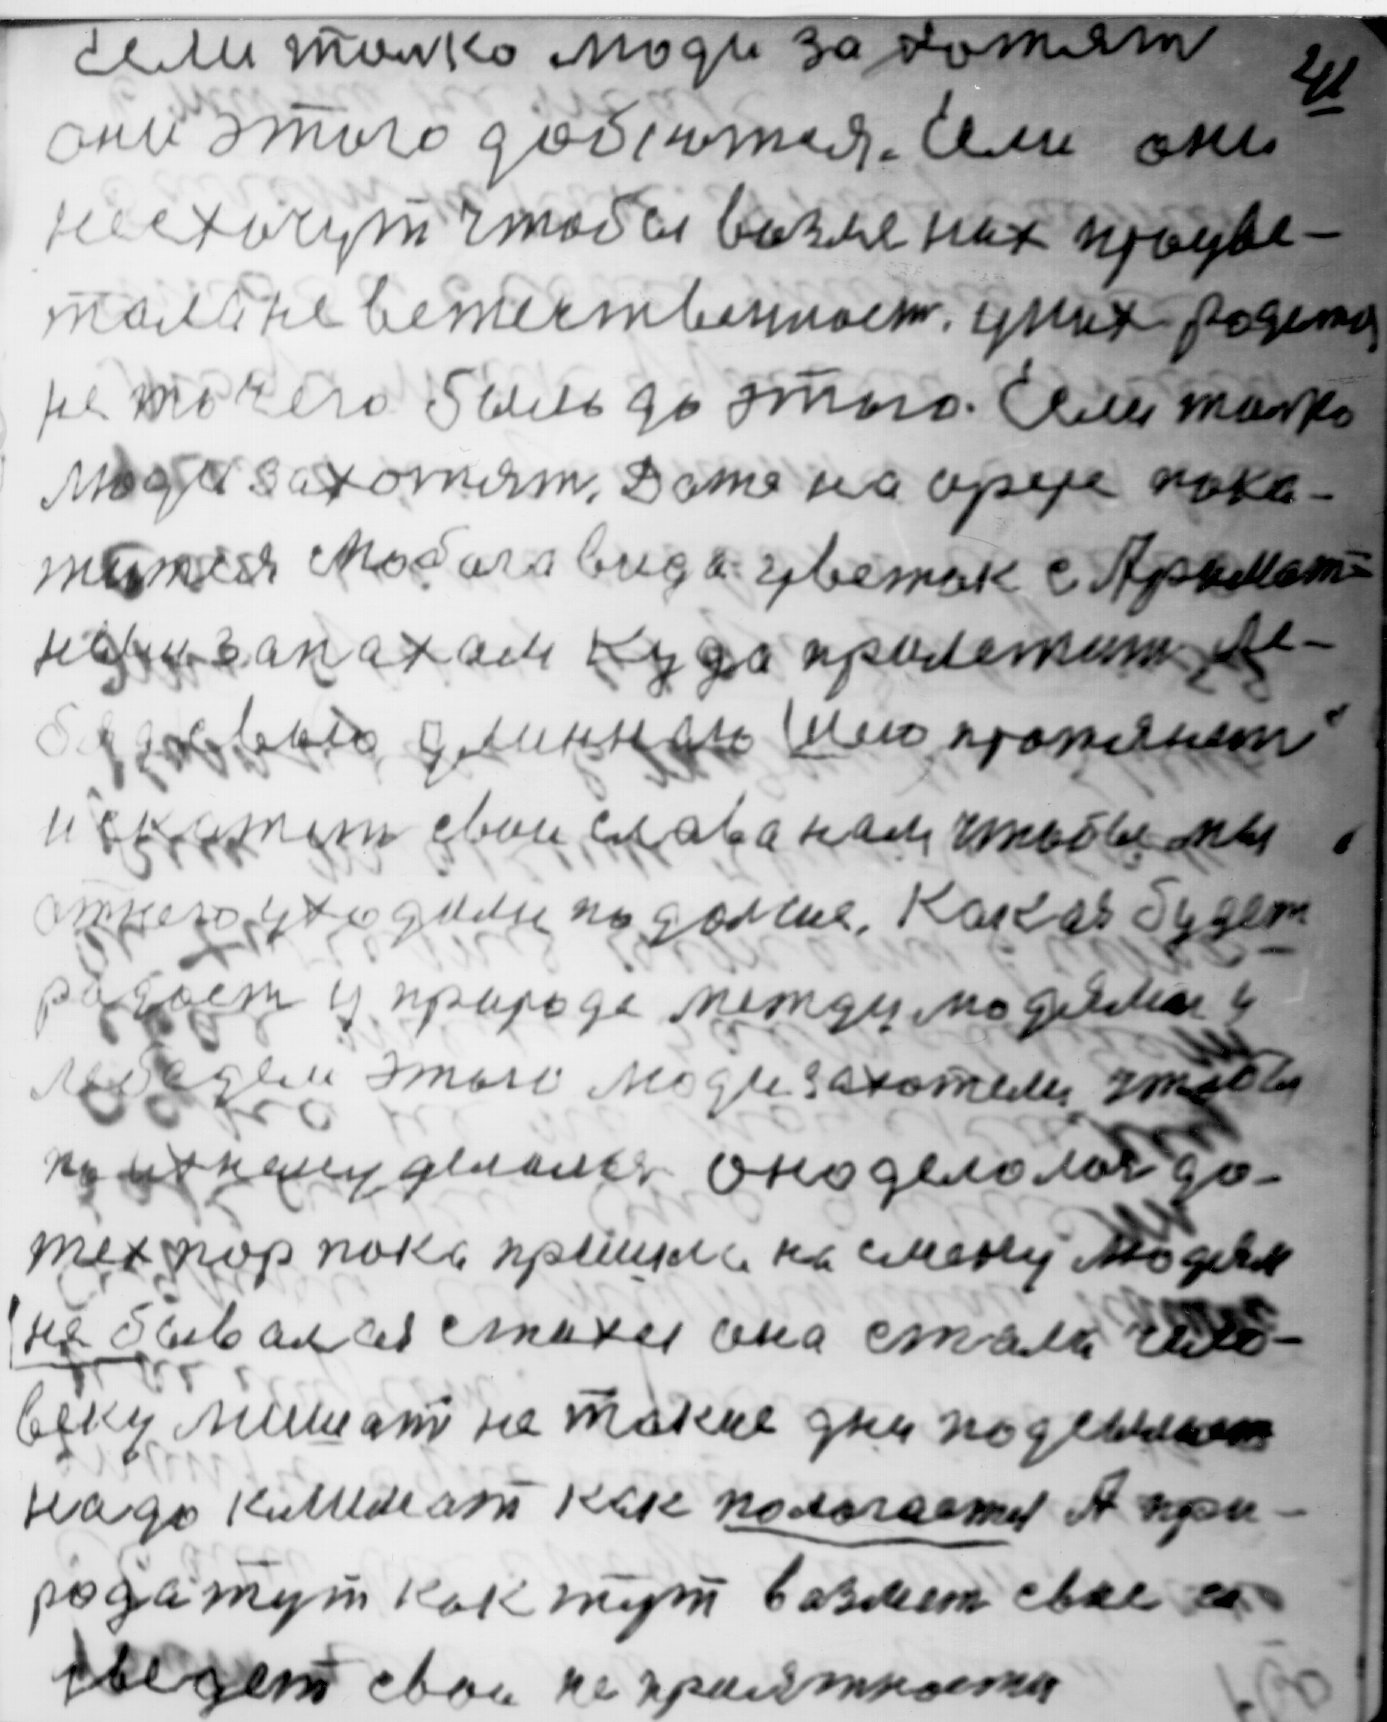 Если толко люди за хотят
41
они этого добются. Если они
несхочут чтобы возле них процве-
тала не вежественност. у них родется
не то чего было до этого. Если толко
люди захотят. Даже на озере пока-
жится любога вида цветок с Аромат-
ным запахом Куда пролетит Ле-
бядь свою длинную шию протянет
и скажет свои слова нам чтобы мы
отнего уходили подолше. Какая будет
радост у природе между людями и
лебедем этого люди захотели чтобы
по ихнему делалося оно делолося до-
тех пор пока пришла на смену людям
не бывалая стихея она стала чело-
веку мишат не такие дни подсылает
надо климат как пологается А при-
рода тут как тут возмет свае и
сведет свои не приятности